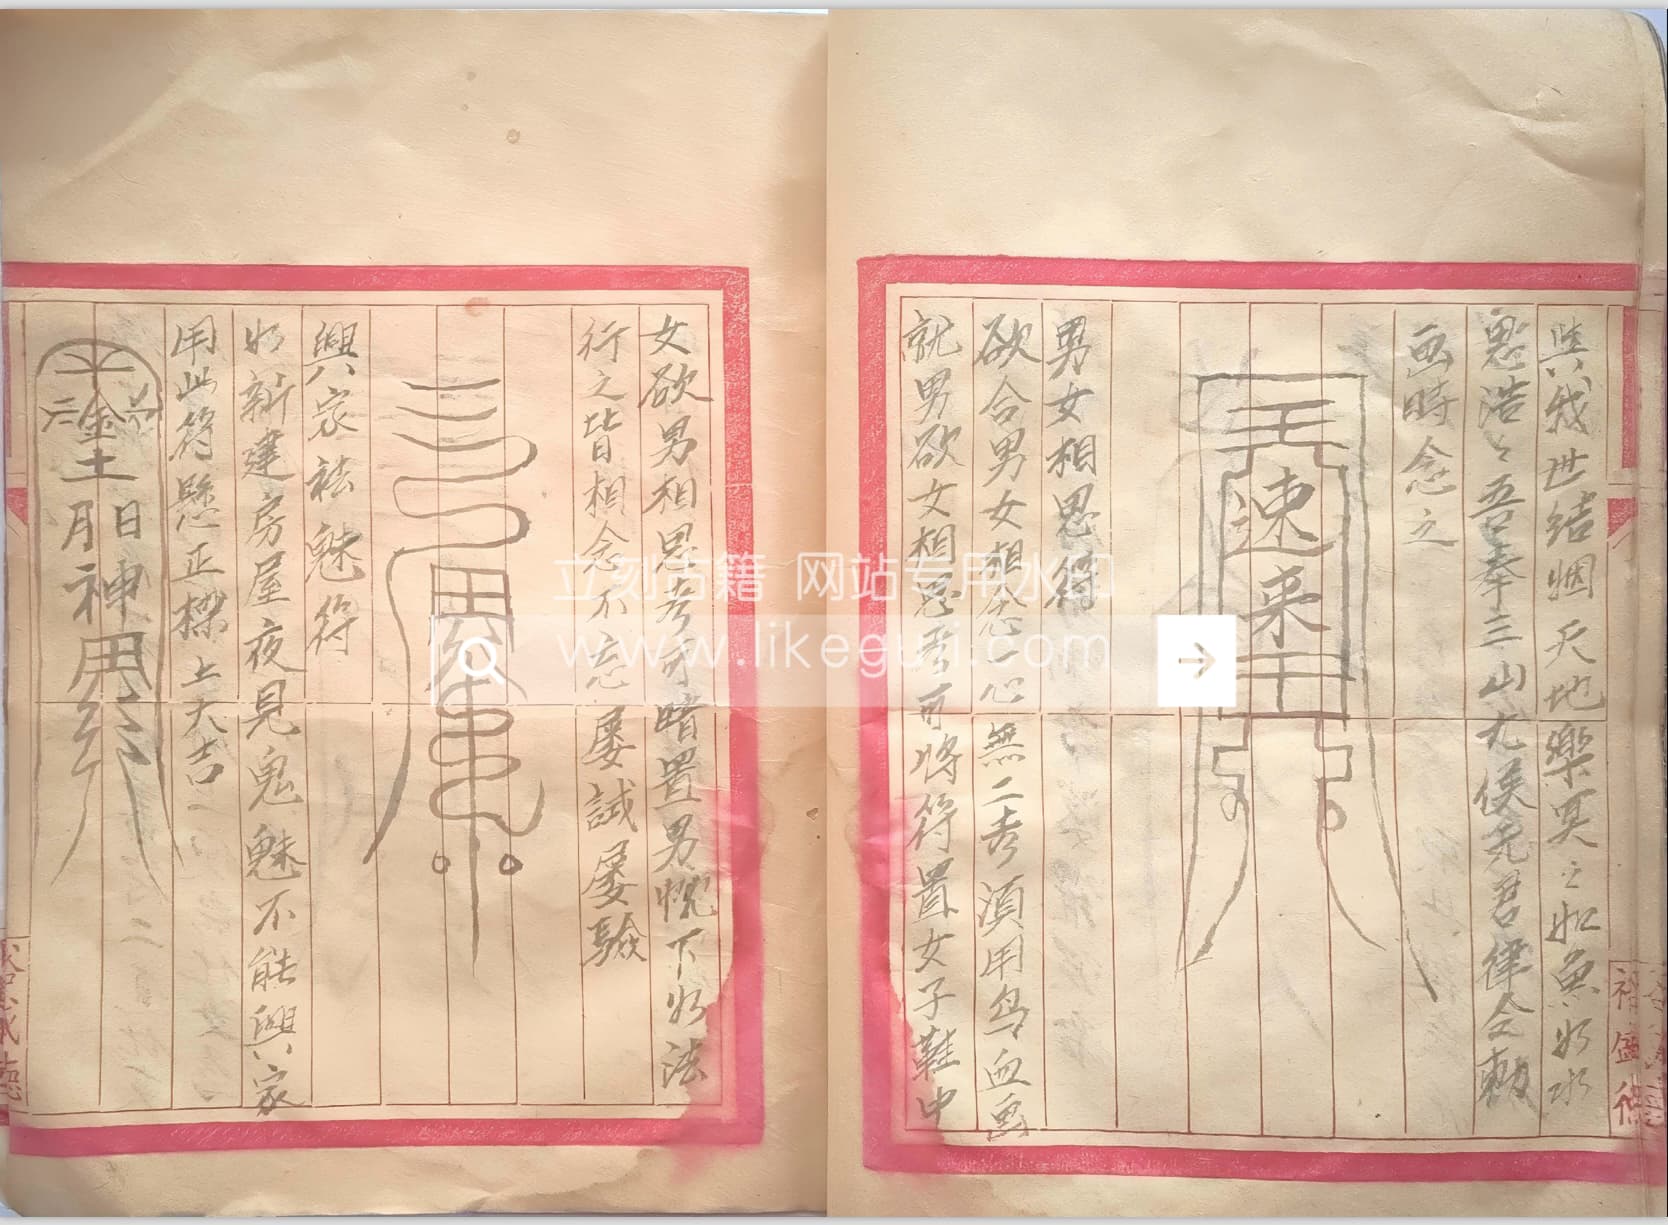 與我世結姻天地樂冥之如魚如水
思浩々吾奉三山九侯先君律令敕
画時念之
速来
男女相思符
欲合男女相念一心無二者湏用鸟血画
就男欲女相思者可將符置女子鞋中
女欲男相思者可暗置男忱下如法
行之皆相念不忘屡試屡驗
興家祛魅符
如新建房屋夜見鬼魅不能興家
用此符懸正樑上大吉
日月
神
用
立刻古籍 网站专用水印
www.likeguji.com